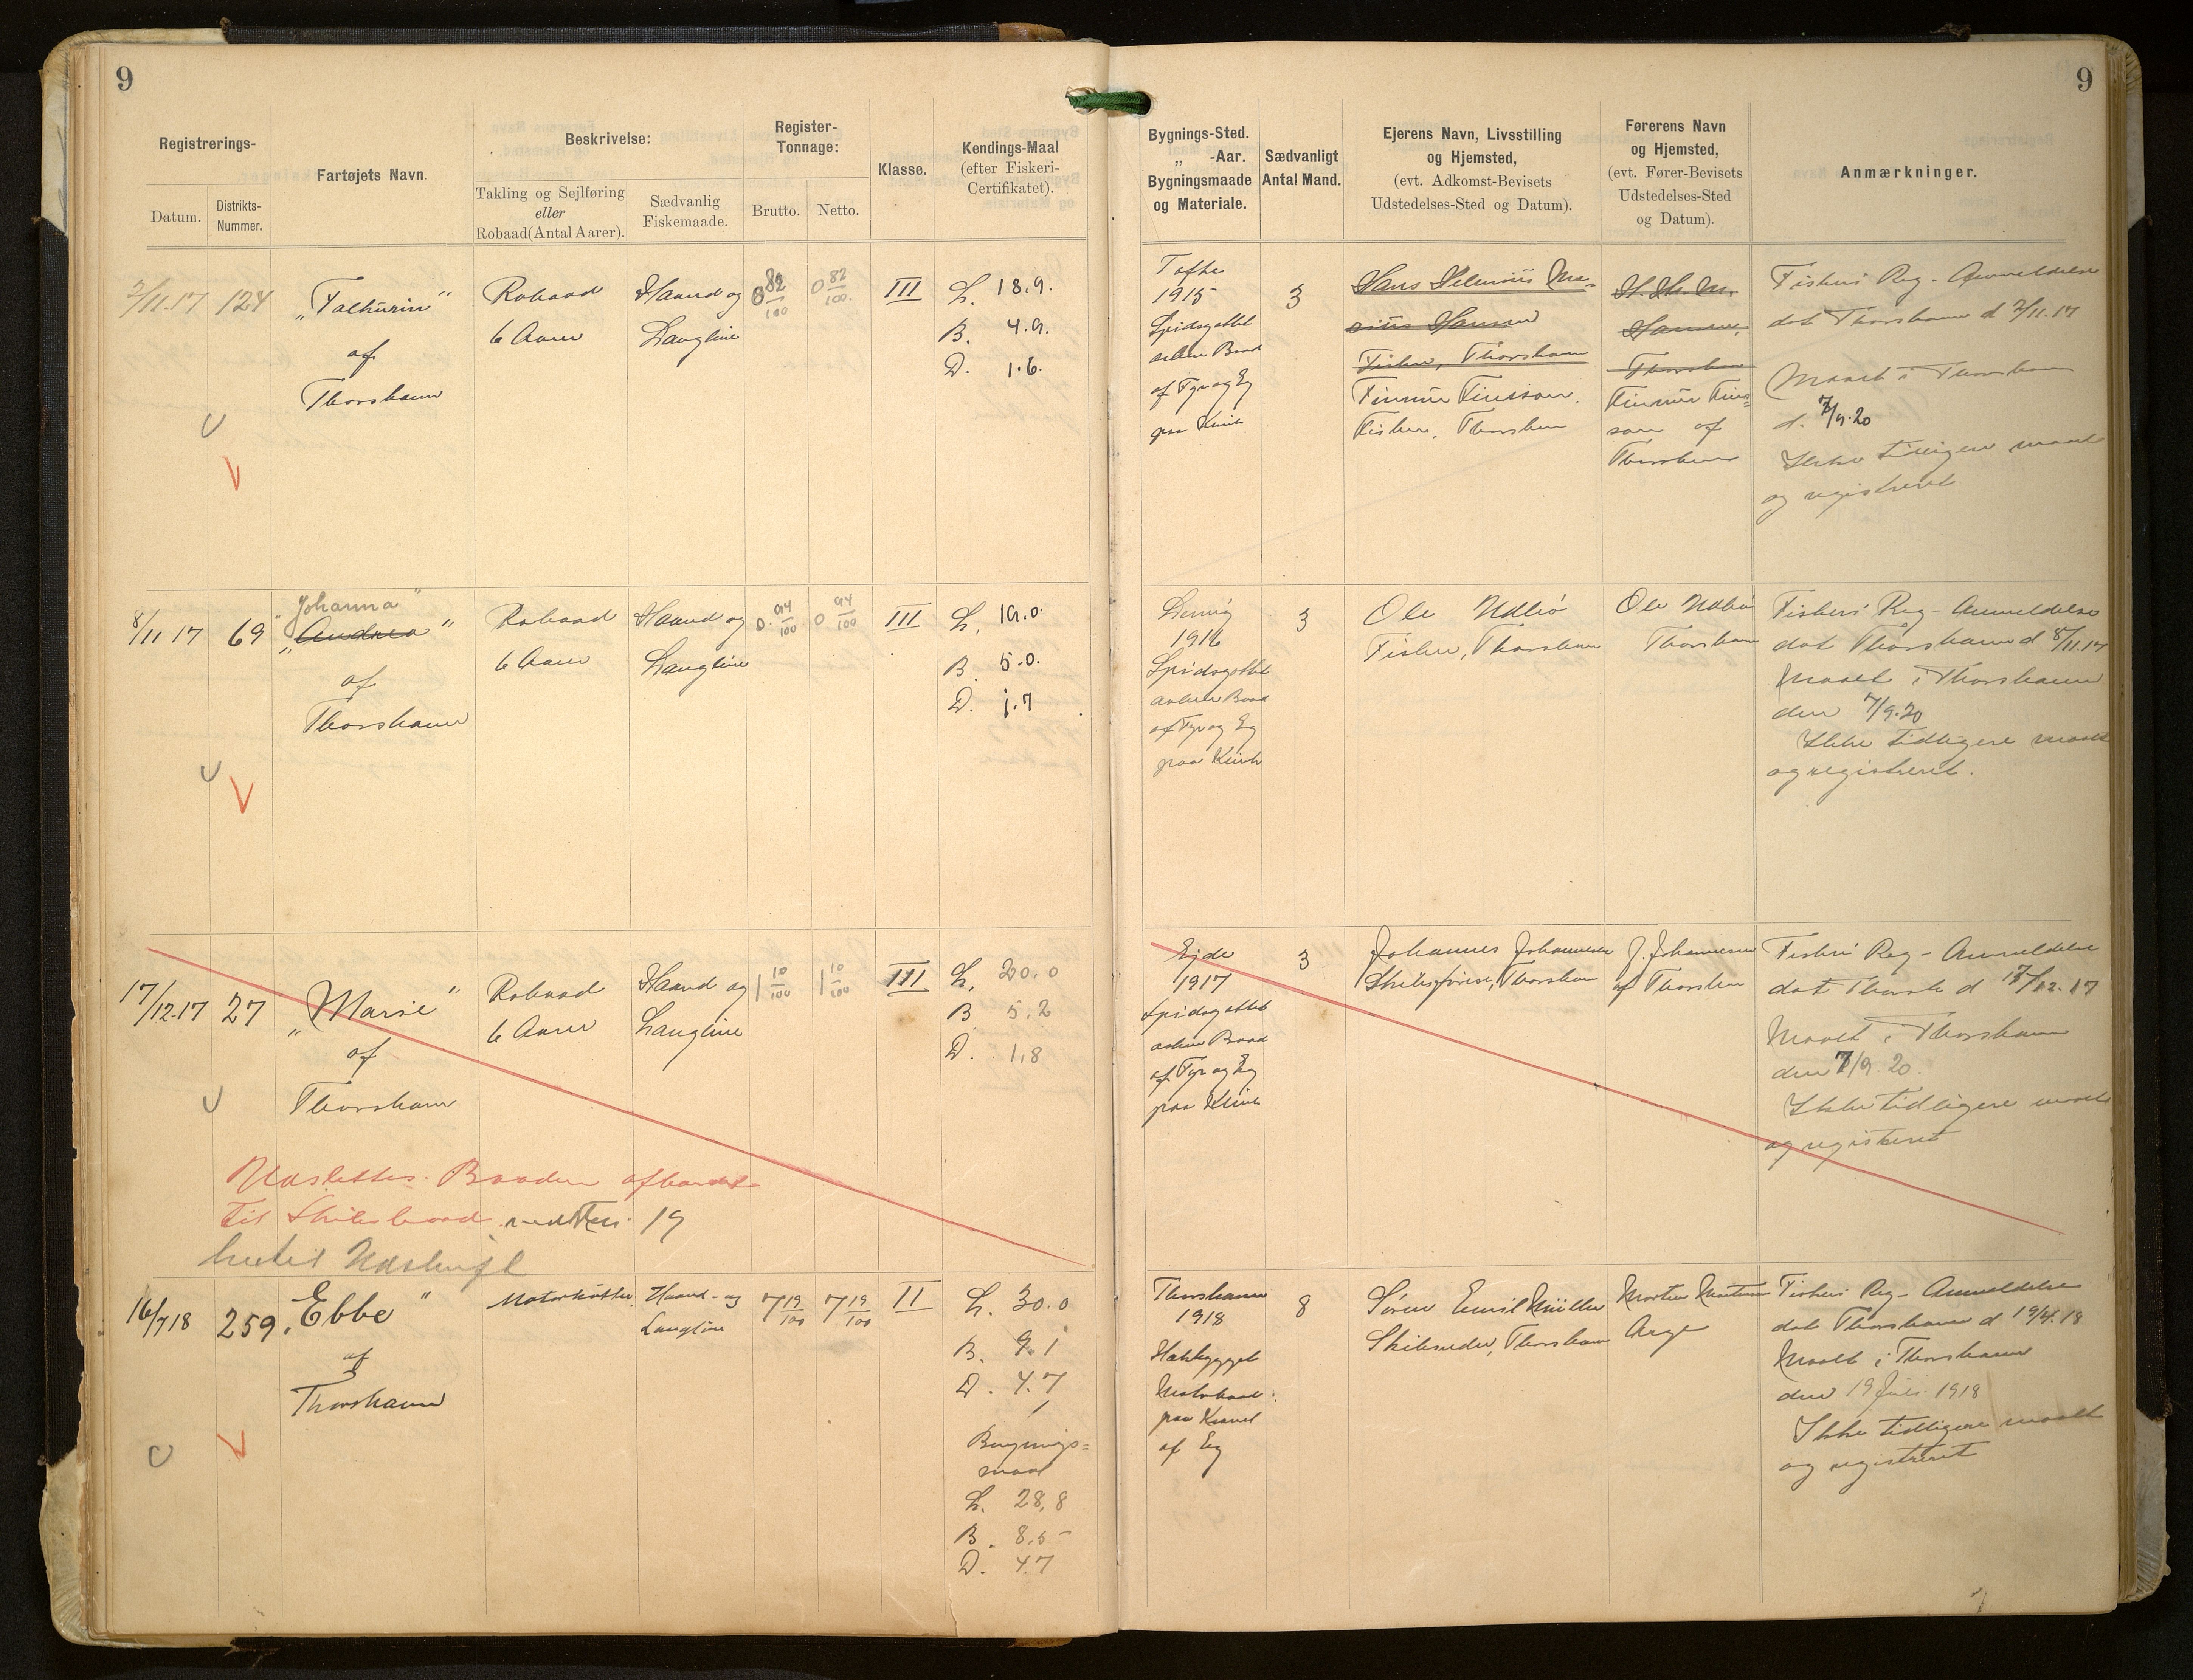 9
9
Registrerings-
Datum.
Distrikts-
Nummer.
Fartøjets Navn.
Beskrivelse:
Takling og Sejlføring
eller
Robaad (Antal Aarer).
Sædvanlig
Fiskemaade.
Register-
Tonnage:
Brutto. Netto.
Klasse.
Kendings-Maal
(efter Fiskeri-
Certifikatet).
Bygnings-Sted.
„ -Aar.
Bygningsmaade
og Materiale.
Sædvanligt
Antal Mand.
Ejerens Navn, Livsstilling
og Hjemsted,
(evt. Adkomst-Bevisets
Udstedelses-Sted og Datum).
Førerens Navn
og Hjemsted,
(evt. Fører-Bevisets
Udstedelses-Sted
og Datum).
Anmærkninger.
2/11.17
124
„Falkurin“
af
Thorshavn
Robaad
6 Aarer
Haand og
Langline
0 82/100
0 82/100
III
L. 18.9.
B. 4.9.
D. 1.6.
Tofte
1915
Spidsgattet
aaben Baad
af Fyr og Eg
paa Klink
3
Hansen
Fisker, Thorshavn
Finnur Finsson.
Fisker, Thorshavn
Hansen,
Thorshavn
Finnur Fins=
son af
Thorshavn
Fiskeri Reg- Anmeldelse
dat Thorshavn d 2/11.17
Maalt i Thorshavn
d. 7/9.20
Ikke tidligere maalt
og registreret
8/11 17
69
Johanna“
„Andrea“
af
Thorshavn
Robaad
6 Aarer
Haand og
Langline
0. 94/100
0 94/100
III
L. 19.0.
B. 5.0.
D. 1.7
1916
Spidsgattet
aaben Baad
af Fyr og Eg
paa Klink
3
Ole
Fisker, Thorshavn
Ole
Thorshavn
Fiskeri Reg- Anmeldelse
dat Thorshavn d 8/11.17
Maalt i Thorshavn
den 7/9.20
Ikke tidligere maalt
og registreret.
17/12.17
27
„Marie“
af
Thorshavn
Robaad
6 Aarer
Haand og
Langline
1 10/100
1 10/100
III
L. 20.0
B 5.2
D. 1,8
Ejde
1917
Spidsgattet
aaben Baad
af Fyr og Eg
paa Klink
3
Johannes Johannesen
Skibsfører, Thorshavn
J. Johannesen
af Thorshavn
Fiskeri Reg- Anmeldelse
dat Thorsh d 17/12.17
Maalt i Thorshavn
den 7/9.20.
Ikke tidligere maalt
og registreret
Udslettes. Baaden afhændet
til Skibsbaad 19
16/7 18
259.
„Ebbe“
af
Thorshavn
Motorkutter
Haand- og
Langline
7 19/100
7 19/100
II
L. 30.0
B. 9.1
D. 4.7
Bygnings=
maal
L. 28,8
B. 8,5
D. 4.7
Thorshavn
1918
Motorbaad
paa Kravel
af Eg
8
Søren Emil Müller
Skibsreder, Thorshavn
Morten Mortensen
Arge
Fiskeri Reg- Anmeldelse
dat Thorshavn d
Maalt i Thorshavn
den 19 Juli 1918
Ikke tidligere maalt
og registreret